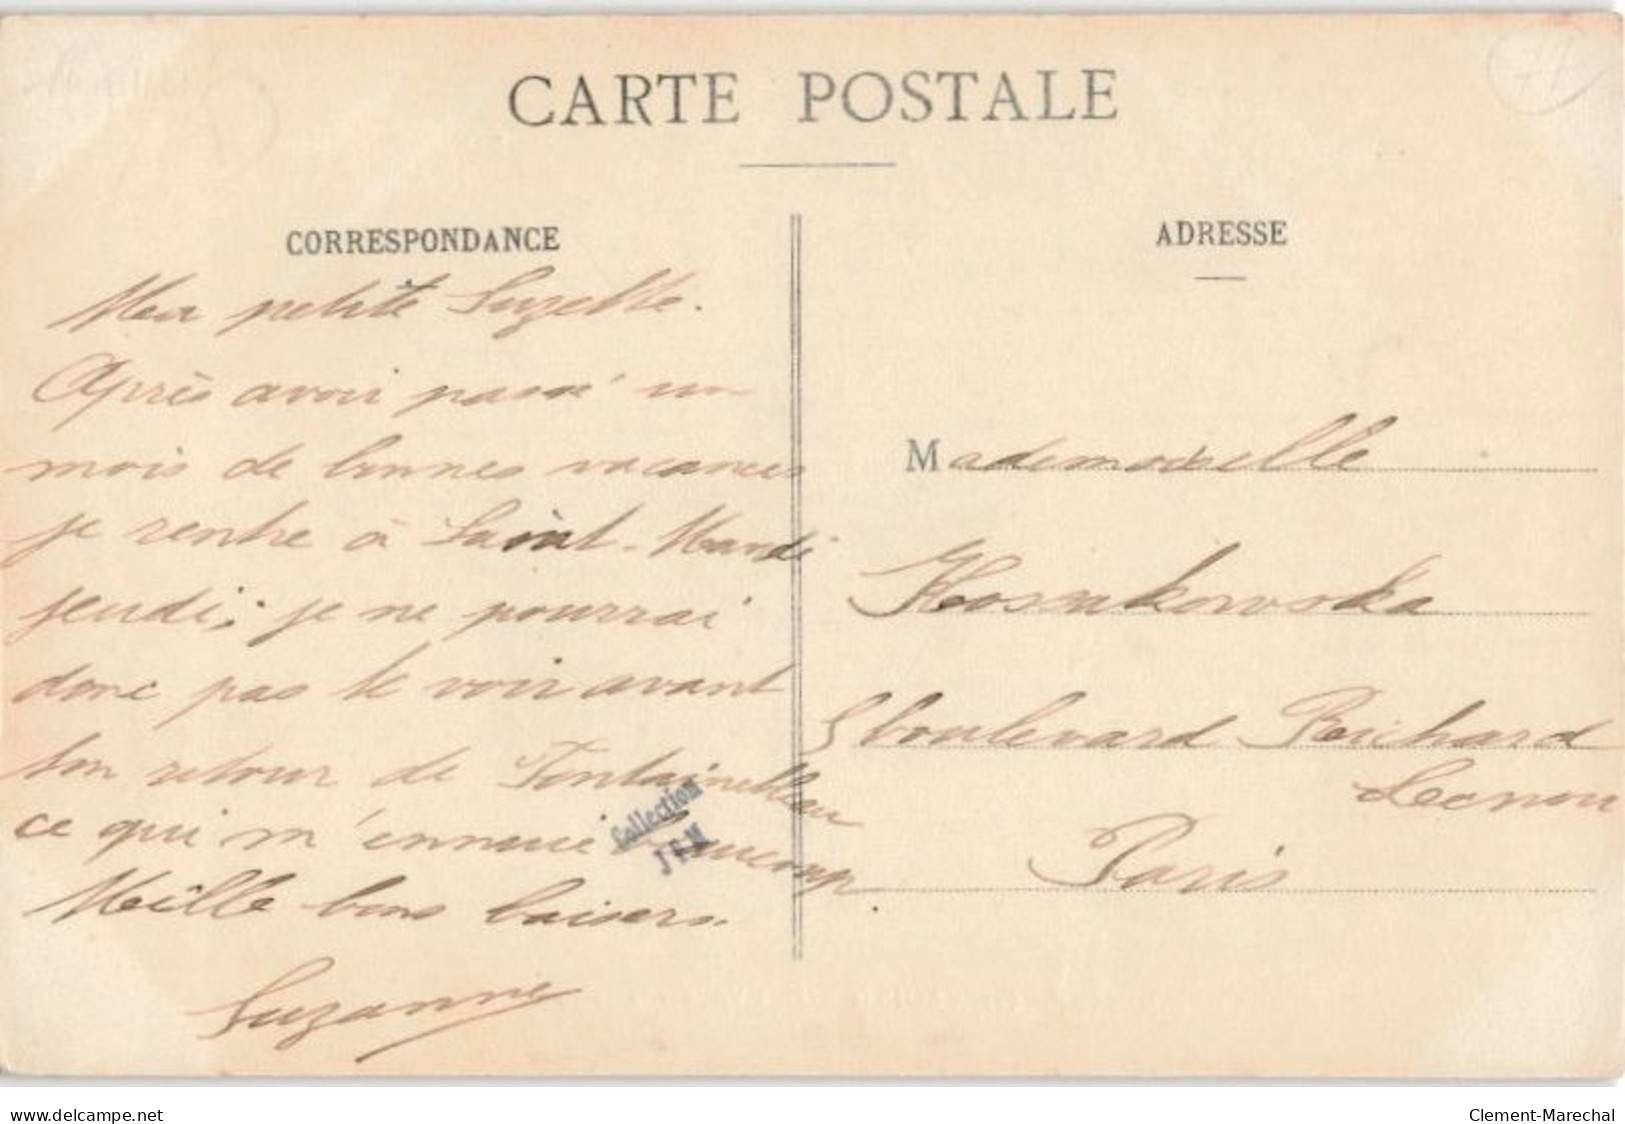 CARTE POSTALE
CORRESPONDANCE
Ma petite Suzette.
Après avoir passé un
mois de bonnes vacances
je rentre à Saint-Mandé
jeudi; je ne pourrai
donc pas te voir avant
ton retour de Fontainebleau
ce qui m'ennuie beaucoup
Meille bons baisers.
Suzanne
Collection
ADRESSE
Mademoiselle
boulevard Richard
Lecnou
Paris
77
www.delcampe.net
Clement-Marechal